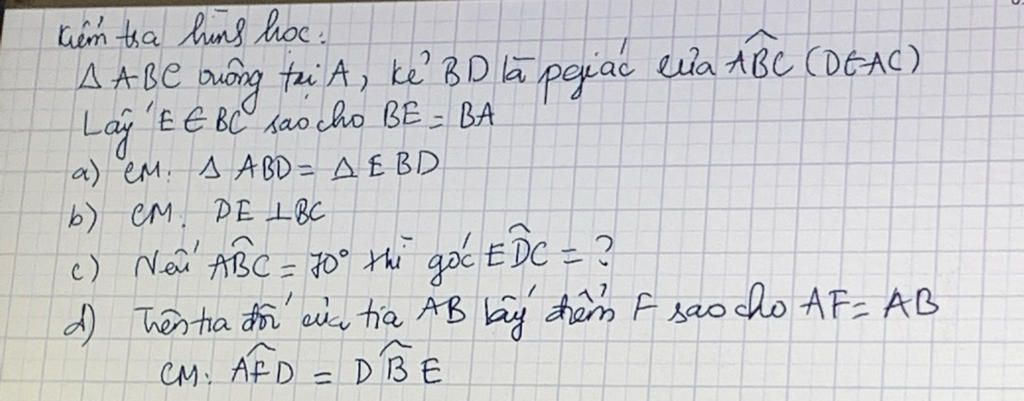 Kiểm tra hình học:
Δ ABC vuông tại A, kẻ BD là pgiác của ABC (D∈AC)
Lấy E ∈ BC sao cho BE = BA
a) CM: Δ ABD = Δ EBD
b) CM: DE ⊥ BC
c) Nếu ABC = 70° thì góc EDC = ?
d) Trên tia đối của tia AB lấy điểm F sao cho AF = AB
CM: AFD = DBE